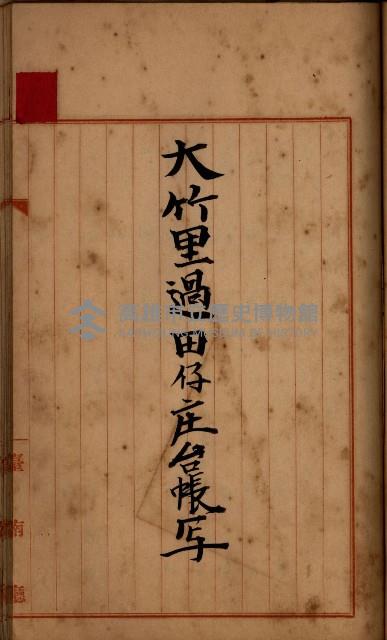 大竹里過田仔庄台帳写
高雄市立歷史博物館
KAOHSIUNG MUSEUM OF HISTORY
臺南廳